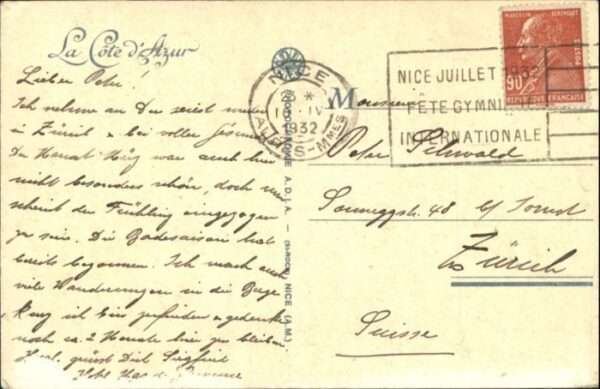 La Côte d'Azur
Lieber Peter!
Ich nehme an Du seiest wieder
in Zürich & bei voller
Der Monat März war auch hier
nicht besonders schön, doch nun
scheint der Frühling eingezogen
zu sein. Die Badesaison hat
bereits begonnen. Ich mach auch
viele Wanderungen in die Berge
ich hier gefunden & gedenke
noch ca. 2 Monate hier zu bleiben.
Herzl. grüsst Dich Siegfried
NICE
1932
NICE JUILLET 1932
FÊTE GYMNIQUE
INTERNATIONALE
90
POSTES
REPUBLIQUE FRANÇAISE
A.D.I.A. — NICE (A.M.)
Monsieur
Peter
Sonneggstr. 48
Zürich
Suisse